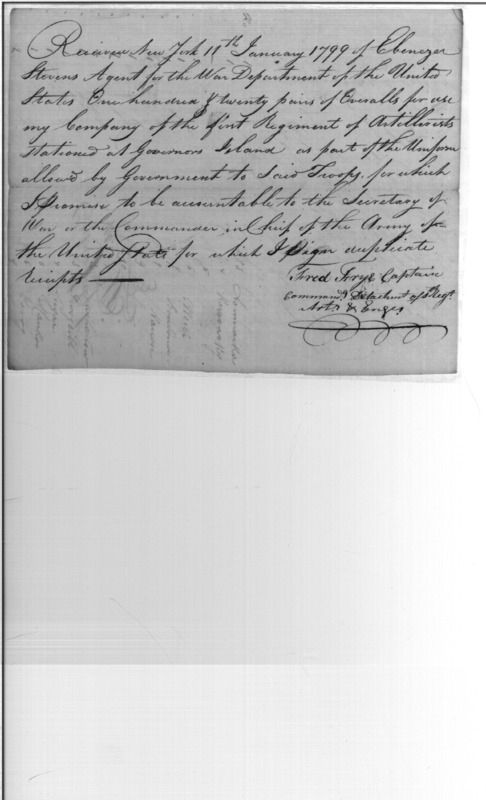 Received New York 11th January 1799 of Ebenezer
Stevens Agent for the War Department of the United
States One hundred & twenty pairs of Overalls for use
my Company of the first Regiment of Artillerists
Stationed at Governors Island as part of the Uniform
allowd by Government to Said Troops, for which
I Promise to be accountable to the Secretary of
War or the Commander in Chief of the Army of
the United States for which I Sign duplicate
reciepts
Fred Frye Captain
command Detachment of Regt.
Arts & Engrs